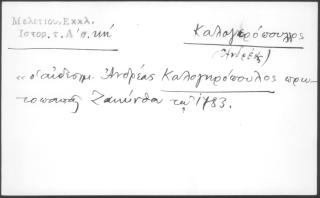 Μελετίου, Εκκλ.
Ιστορ. τ. Α' σ. κή
Καλογερόπουλος
(Ἀνδρέας)
« ὁ αἰδεσιμ. Ἀνδρέας Καλογηρόπουλος πρω-
τοπαπᾶς Ζακύνθου τῷ 1783.